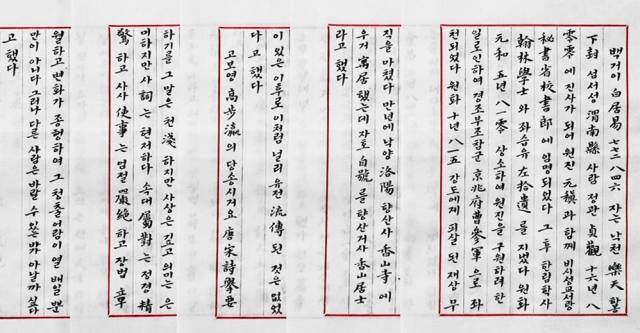 백거이 白居易 七七二 八四六 자는 낙천 樂天 할
下封 섬서성 渭南縣 사람 정관 貞觀 十六年 八
零零 에 진사가 되어 원진 元稹 과 함께 비서성교서랑
秘書省校書郎 에 임명되었다 그 후 한림학사
翰林學士 와 좌습유 左拾遺 를 지냈다 원화
元和 五年 八一零 상소하여 원진을 구원하려 한
일로 인하여 경조부조참군 京兆府曹參軍 으로 좌
천되었다 원화 十年 八一五 강도에게 피살 된 재상 무
직을 마쳤다 만년에 낙양 洛陽 향산사 香山寺 에
우거 寓居 했는데 자호 自號 를 향산거사 香山居士
라고 했다
이 있은 이후로 이처럼 널리 유전 流傳 된 것은 없었
다 고 했다
고보영 高步瀛 의 당송시거요 唐宋詩擧要
하기를 그 말은 천 淺 하지만 사상은 깊고 의미는 은
미하지만 사 詞 는 현저하다 속대 屬對 는 정경 精
驚 하고 사사 使事 는 엄절 嚴絶 하고 장법 章
월하고 변화가 종횡하여 그 청출어람이 열 배일 뿐
만이 아니다 그러나 다른 사람은 바랄 수 있는 밖 아닐까 싶다
고 했다